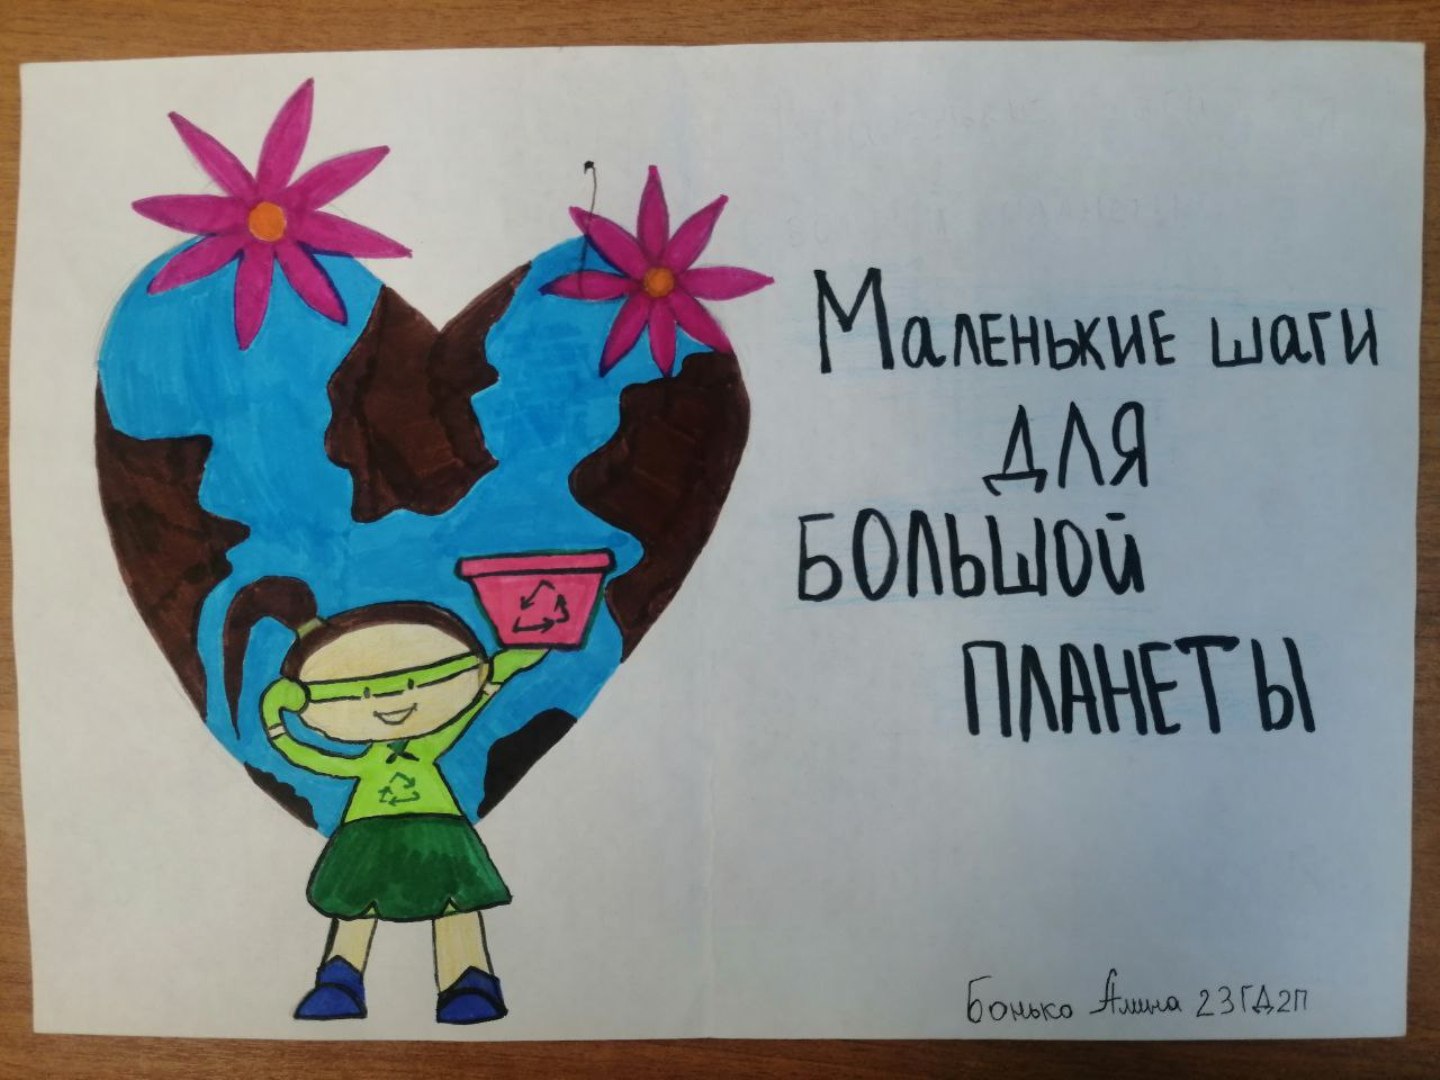 Маленькие шаги
для
большой
планеты
Бонько Алина 23ГД2П